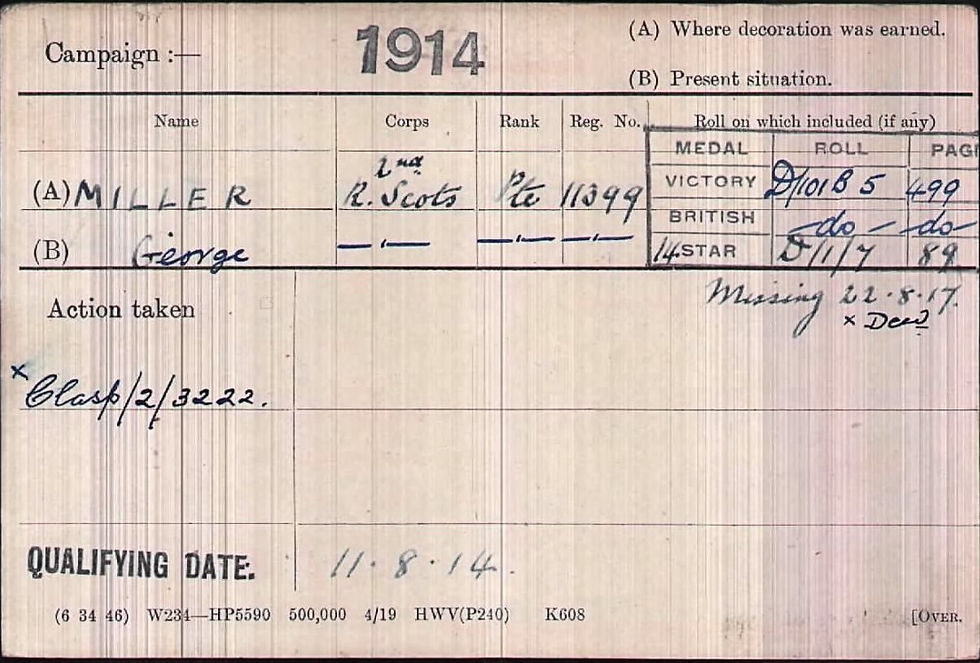 Campaign :— 1914 (A) Where decoration was earned.
(B) Present situation.
Name Corps Rank Reg. No. Roll on which included (if any)
MEDAL ROLL PAG
2nd
(A) MILLER R. Scots Pte 11399 VICTORY D/101B5 499
BRITISH —do— —do—
(B) George — " — — " — — " — 14 STAR D/1/7 89
Action taken Missing 22.8.17.
x Decd
x
Clasp/2/3222.
QUALIFYING DATE. 11.8.14.
(6 34 46) W234—HP5590 500,000 4/19 HWV(P240) K608 [OVER.